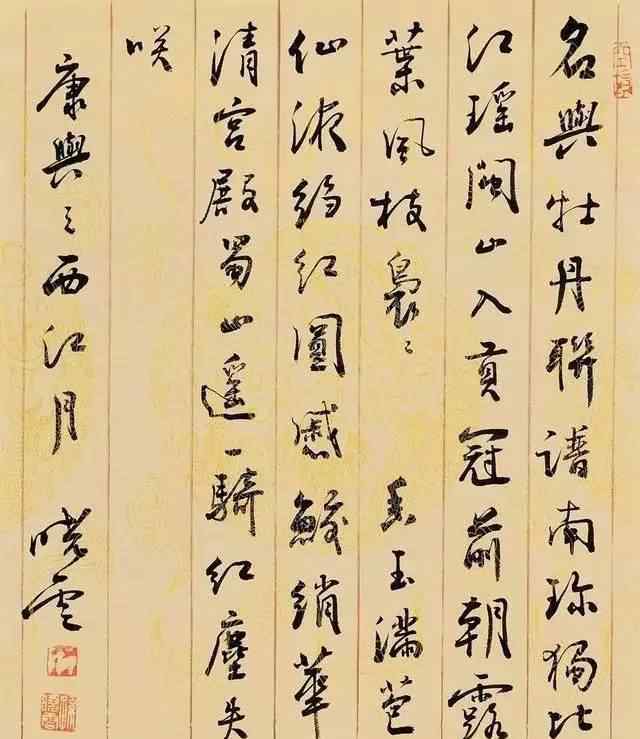 名與牡丹聯譜南珍獨比
江瑶閩山入貢冠前朝露
葉風枝裊〻 香玉滿苞
仙液紅圓慼鮫綃華
清宮殿蜀山遥一騎紅塵失
咲
康與之西江月 曉雲